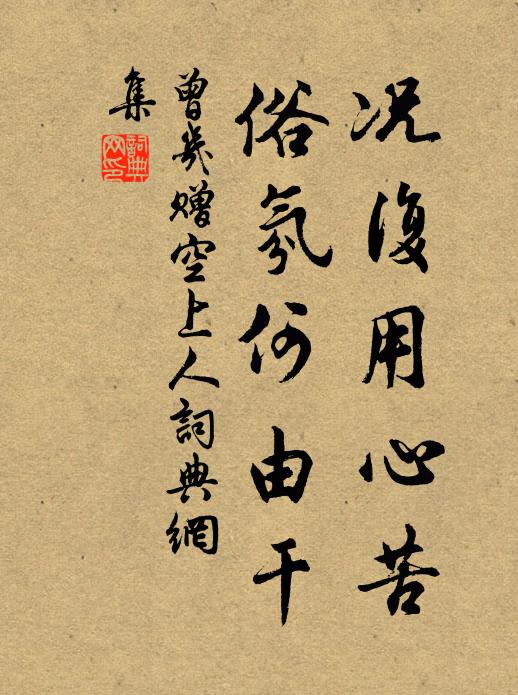 况復用心苦
俗氛何由干
曾幾贈空上人詞典網
集
詞典
网印